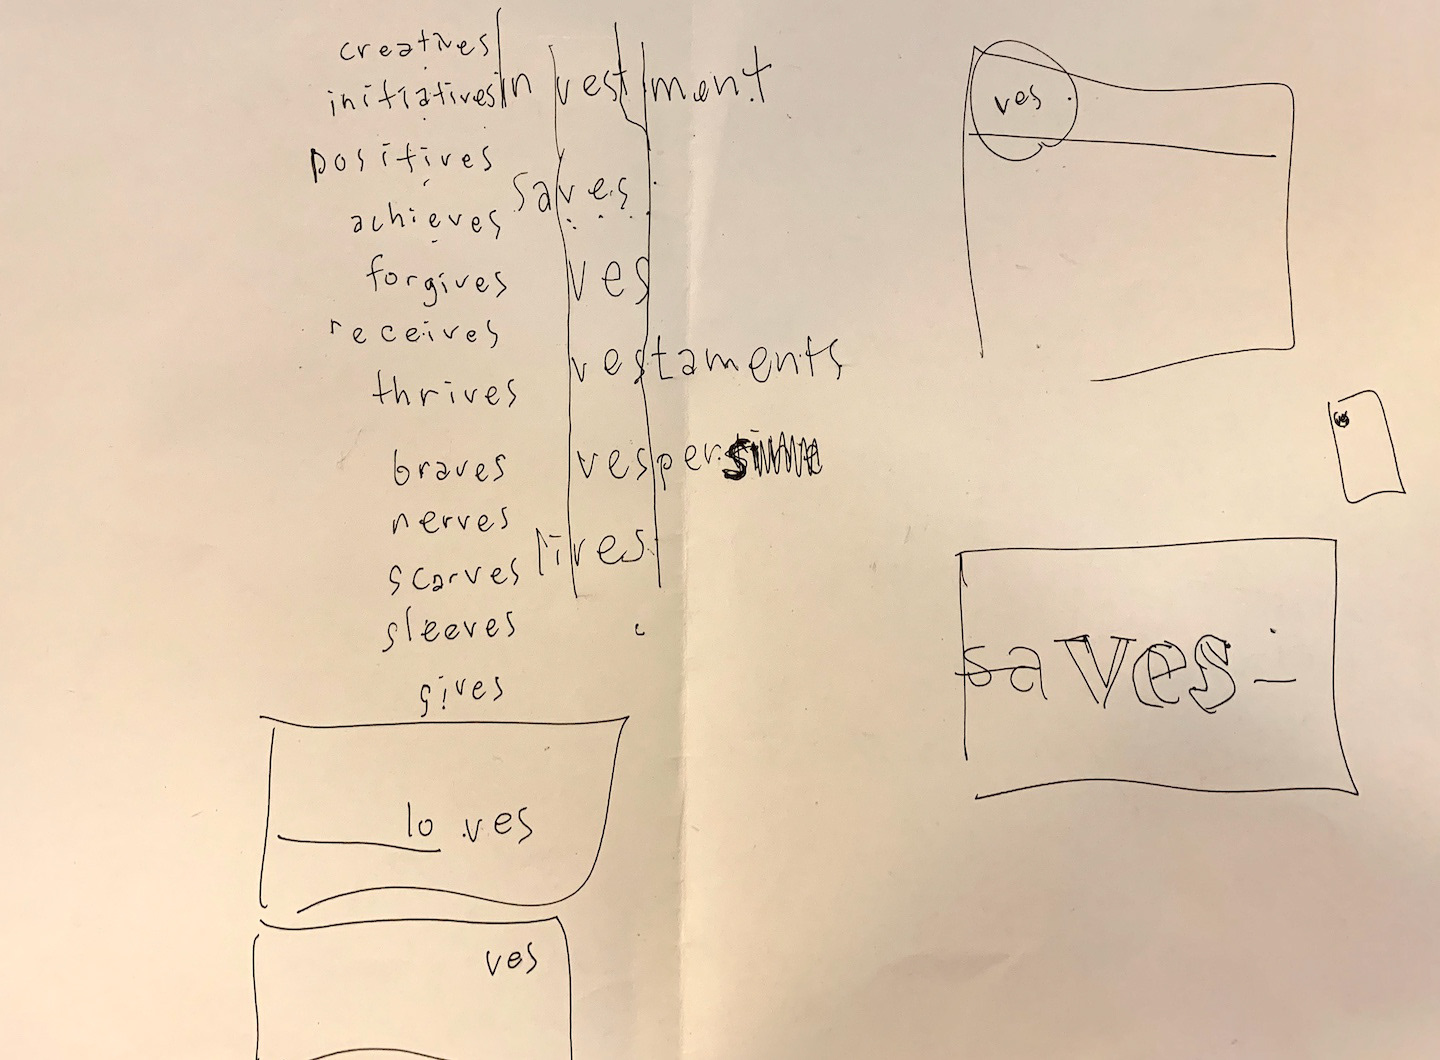 creatives
initiatives
positives
achieves
forgives
receives
thrives
braves
nerves
scarves
sleeves
gives
investment
saves
ves
vestaments
vesper
lives
lo ves
ves
ves
saves